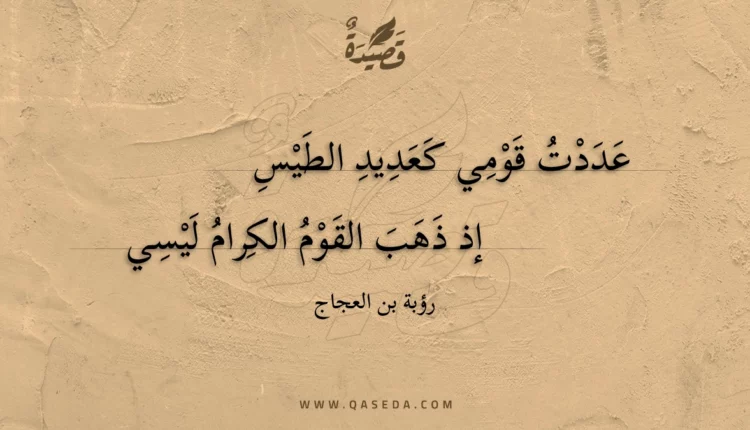 قَصِيدَةٌ
عَدَدْتُ قَوْمِي كَعَدِيدِ الطَيْسِ
إذ ذَهَبَ القَوْمُ الكِرامُ لَيْسِي
رؤبة بن العجاج
WWW.QASEDA.COM